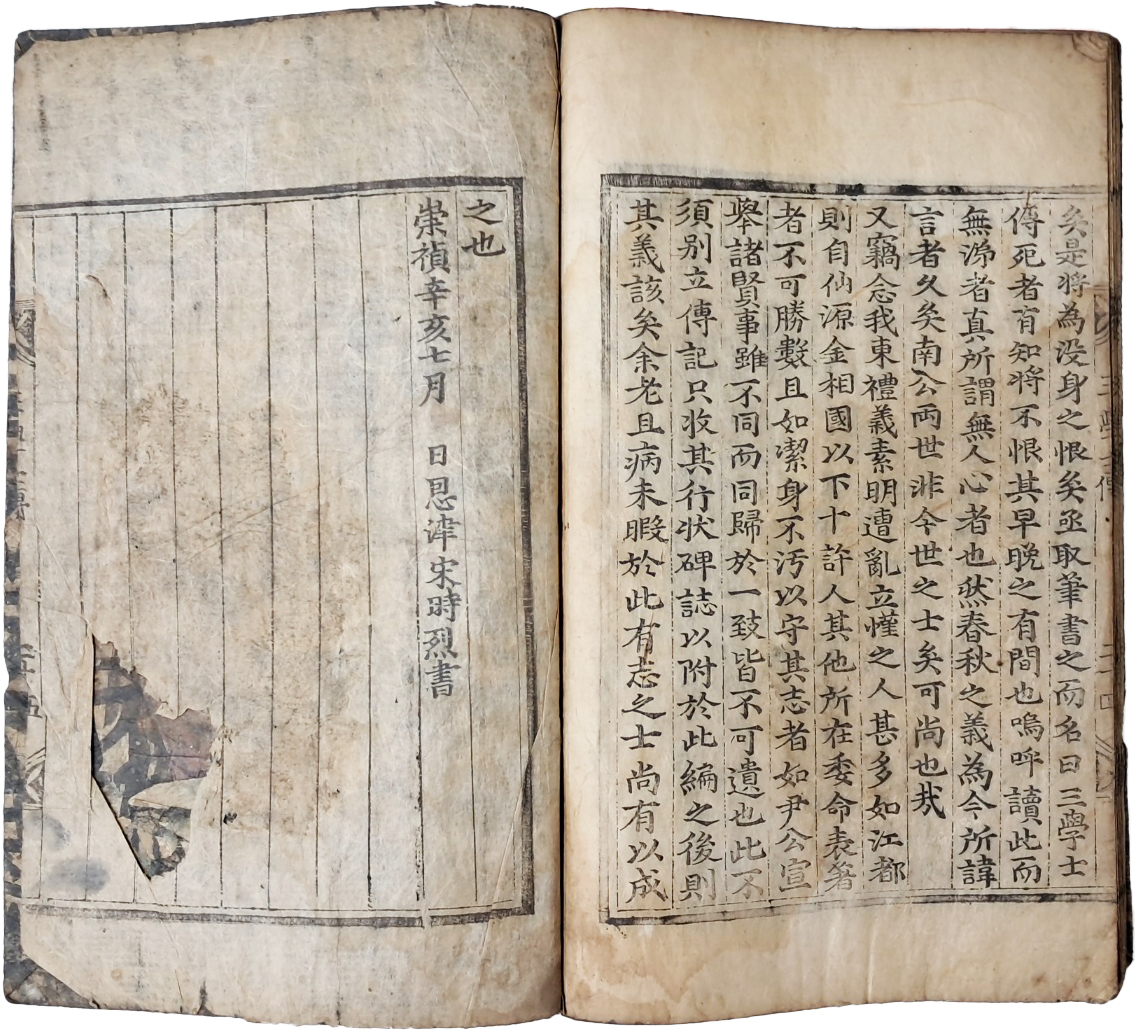 矣是將為没身之恨矣亟取筆書之而名曰三學士
傳死者有知將不恨其早晚之有間也嗚呼讀此而
無涕者真所謂無人心者也然春秋之義為今所諱
言者久矣南公兩世非今世之士矣可尚也㢤
又竊念我東禮義素明遭亂立慬之人甚多如江都
則自仙源金相國以下十許人其他所在委命表著
者不可勝數且如潔身不汚以守其志者如尹公宣
擧諸賢事雖不同而同歸於一致皆不可遺也此不
須别立傳記只收其行狀碑誌以附於此編之後則
其義該矣余老且病未暇於此有志之士尚有以成
之也
崇禎辛亥七月　日恩津宋時烈書
三學士傳
二十四